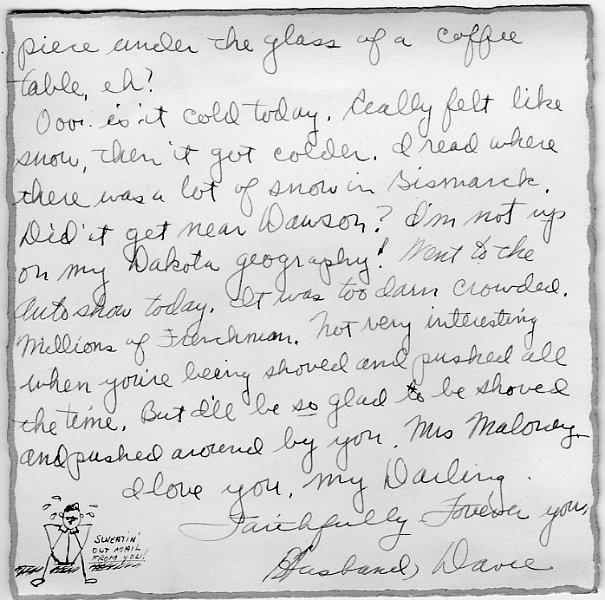 piece under the glass of a coffee
table, eh?
Ooo. is it cold today. Really felt like
snow, then it got colder. I read where
there was a lot of snow in Bismarck.
Did it get near Dawson? I'm not up
on my Dakota geography! Went to the
auto show today. It was too darn crowded.
Millions of Frenchmen. Not very interesting
when you're being shoved and pushed all
the time. But I'll be so glad to be shoved
and pushed around by you, Mrs Maloney.
I love you, my Darling.
Faithfully Forever your
Husband, Dave
SWEATIN'
OUT MAIL
FROM YOU!